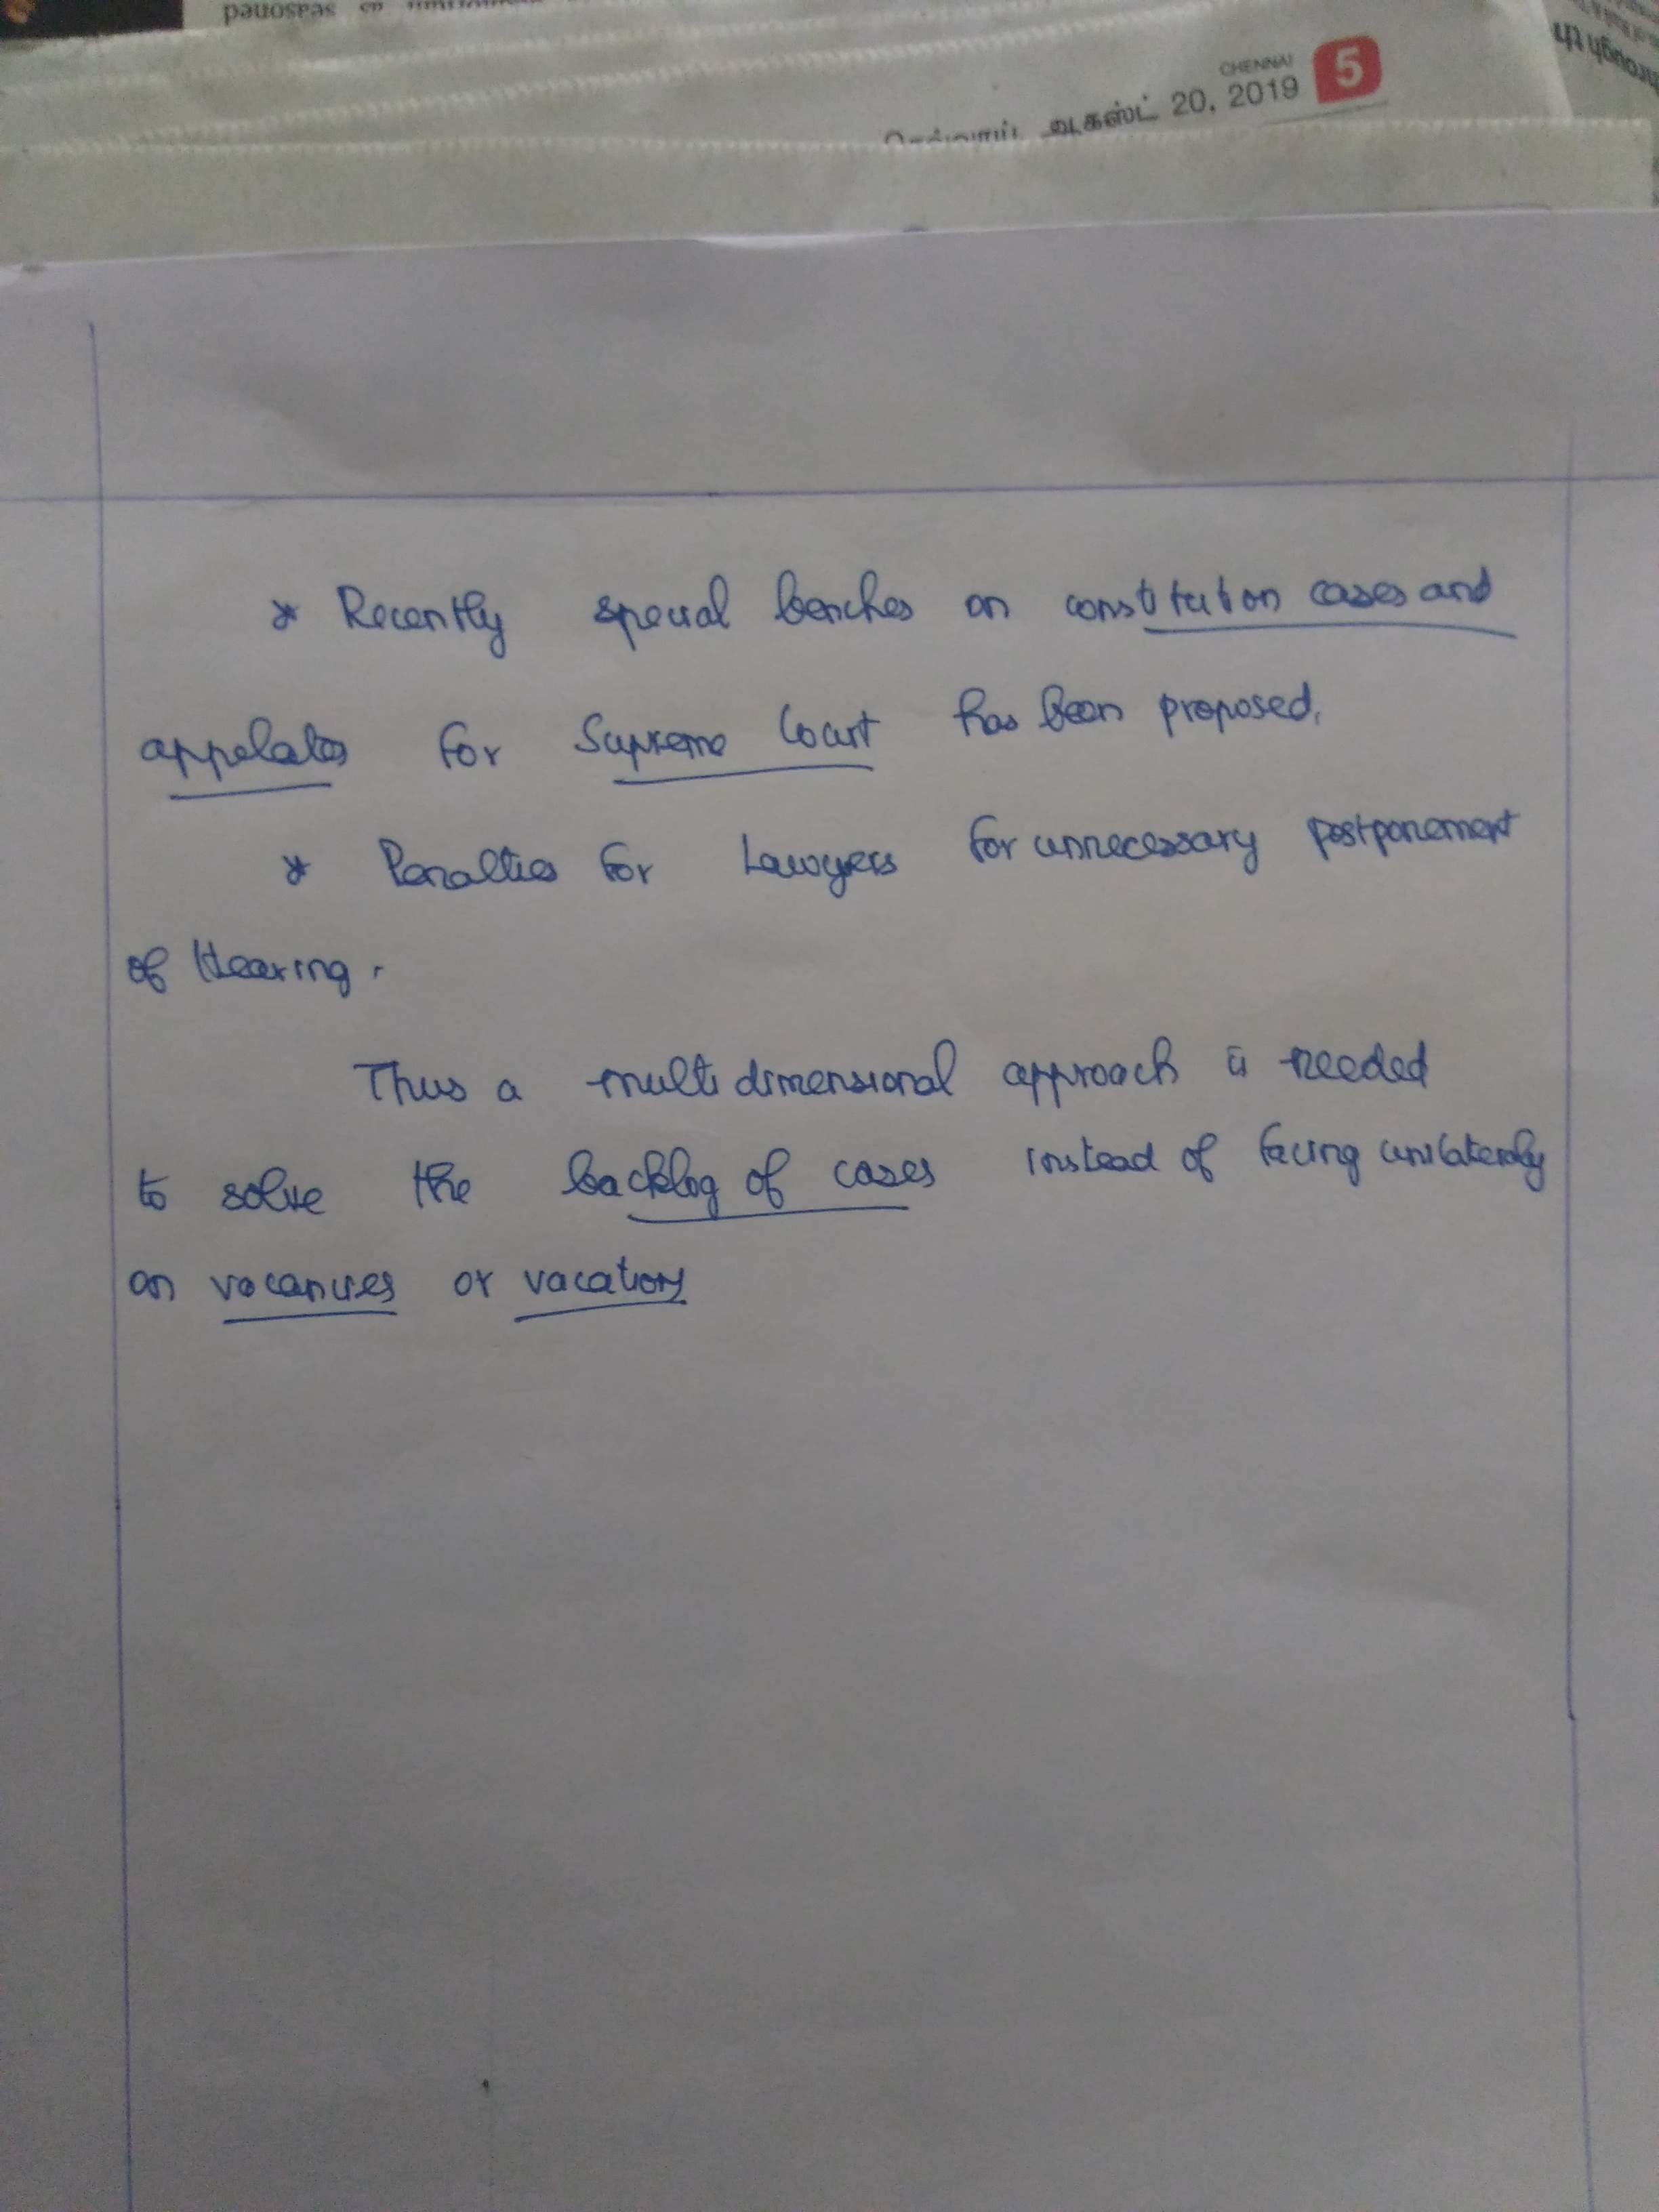 seasoned
through th
CHENNAI
ஆகஸ்ட் 20, 2019 5
* Recently special benches on constitution cases and
appelates for Supreme Court has been proposed.
* Penalties for Lawyers for unnecessary postponement
of Hearing.
Thus a multi dimensional approach is needed
to solve the backlog of cases instead of facing unilaterally
on vacancies or vacations